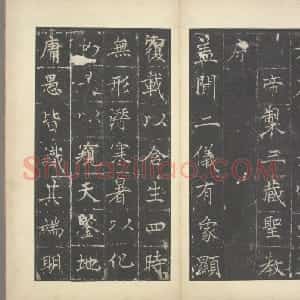 帝製三藏聖教
序
盖聞二儀有象顯
覆載以含生四時
無形潛寒暑以化
窺天鑒地
庸愚皆識其端明